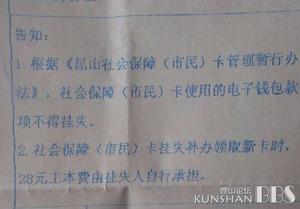 告知：
1.根据《昆山社会保障（市民）卡管理暂行办
法》，社会保障（市民）卡使用的电子钱包款
项不得挂失。
2.社会保障（市民）卡挂失补办领取新卡时，
28元工本费由挂失人自行承担。
昆山论坛
KUNSHAN BBS